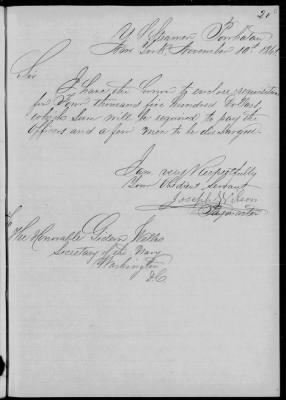 20
U. S. Steamer Powhatan
New York November 10th 186
Sir
I have the honor to enclose requisition
for Four thousand five hundred Dollars,
which Sum will be required to pay the
Officers and a few men to be discharged.
I am very Respectfully
Your Obedient Servant
Joseph
Paymaster
To
The Honorable Gideon Welles
Secretary of the Navy
Washington
D.C.